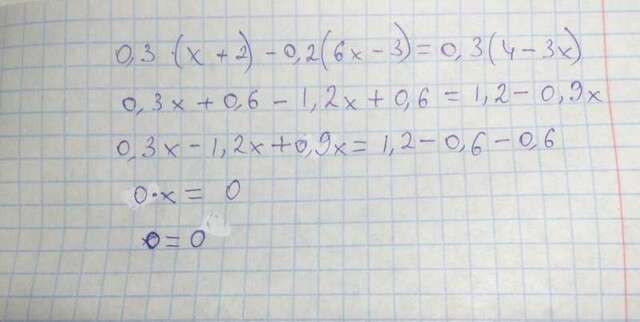 0,3 · (x + 2) - 0,2(6x - 3) = 0,3(4 - 3x)
0,3x + 0,6 - 1,2x + 0,6 = 1,2 - 0,9x
0,3x - 1,2x + 0,9x = 1,2 - 0,6 - 0,6
0·x = 0
0 = 0